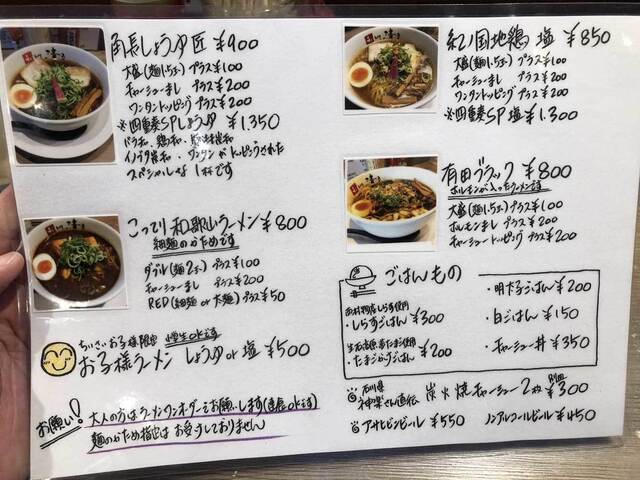 角長しょうゆ匠 ¥900
大盛(麺1.5玉) プラス¥100
チャーシューまし プラス¥200
ワンタントッピング プラス¥200
※四重奏SPしょうゆ ¥1.350
バラ和、鶏和、
イノブタ炭和、ワンタンがトッピングされた
スペシャルな1杯です
こってり和歌山ラーメン ¥800
細麺のかためです
ダブル(麺2玉) プラス¥100
チャーシューまし プラス¥200
RED(細麺 or 太麺) プラス¥50
ちいさいお子様限定 小学生okです
お子様ラーメン しょうゆor塩 ¥500
お願い! 大人の方はワンオーダーをお願いします
麺のかため指定はお受けしておりません
紀ノ国地鶏 塩 ¥850
大盛(麺1.5玉) プラス¥100
チャーシューまし プラス¥200
ワンタントッピング プラス¥200
※四重奏SP塩 ¥1.300
有田ブラック ¥800
ホルモンが入ったラーメンです
大盛(麺1.5玉) プラス¥100
ホルモンまし プラス¥200
チャーシュートッピング プラス¥200
ごはんもの
しらす使用
・しらすごはん ¥300
・たまごかけごはん ¥200
・明太子ごはん ¥200
・白ごはん ¥150
・チャーシュー丼 ¥350
石川県
神楽さん直伝 炭火焼チャーシュー2枚 別皿 ¥300
アサヒビンビール ¥550
ノンアルコールビール ¥450